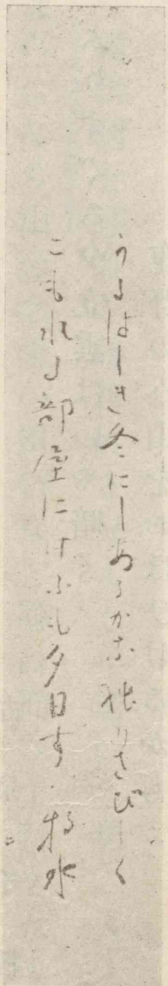 うるはしき冬にしあるかな独りさびしく
こもれる部屋にけふも夕日す 牧水